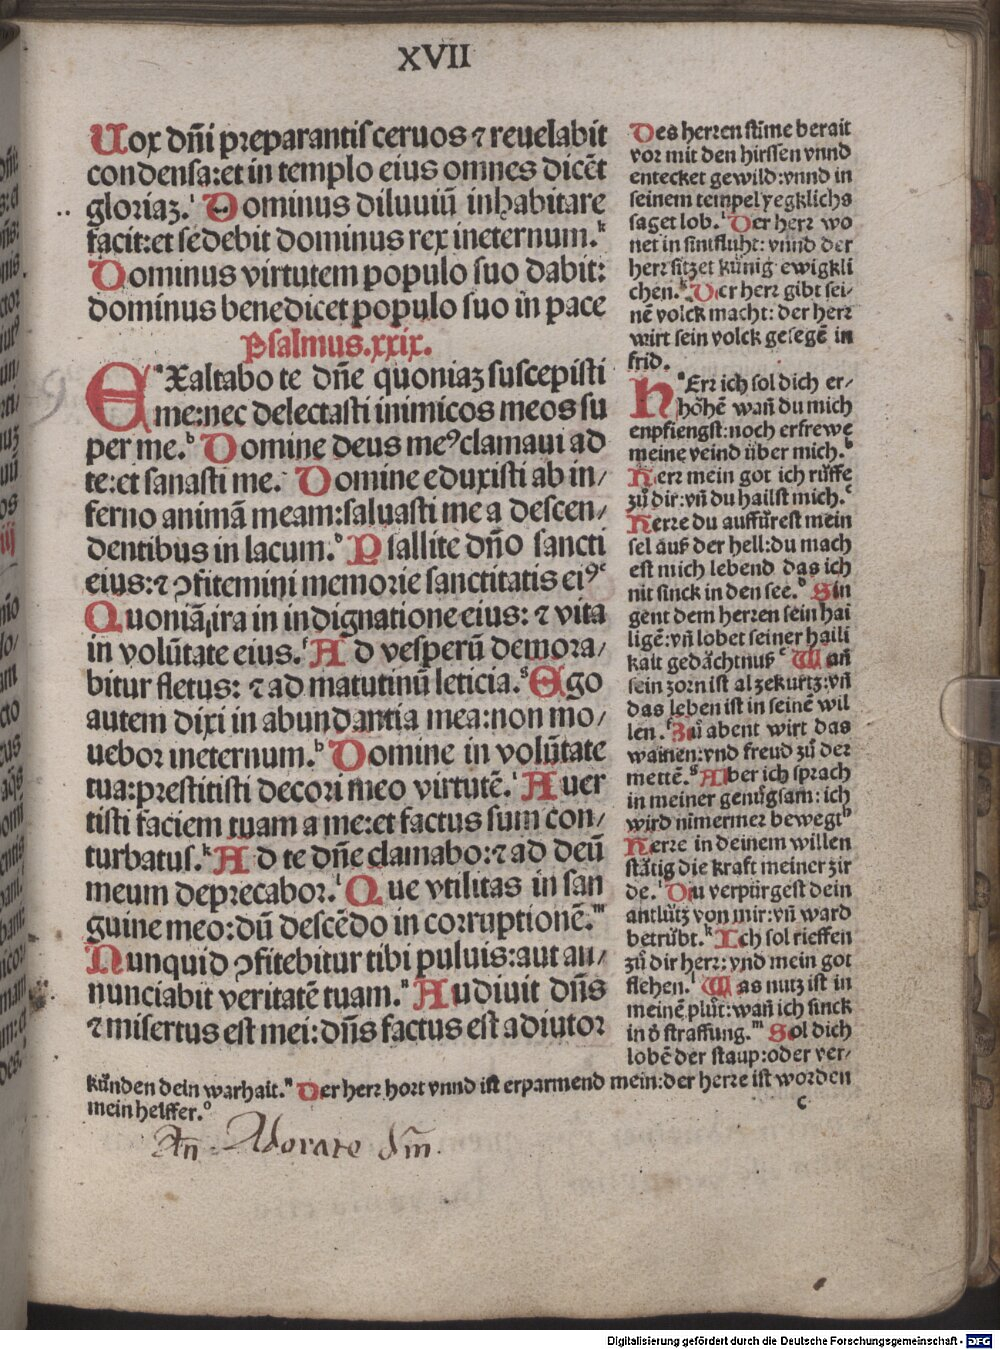 XVII
Uox dn̄i preparantis ceruos ⁊ reuelabit
condensa:et in templo eius omnes dicēt
gloriaꝫ.ⁱ Dominus diluuiū inhabitare
facit:et sedebit dominus rex ineternum.ᵏ
Dominus virtutem populo suo dabit:
dominus benedicet populo suo in pace
Psalmus.xxix.
EXaltabo te dn̄e quoniaꝫ suscepisti
me:nec delectasti inimicos meos su
per me.ᵇ Domine deus meꝰ clamaui ad
te:et sanasti me. Domine eduxisti ab in/
ferno animā meam:saluasti me a descen/
dentibus in lacum.ᵈ Psallite dn̄o sancti
eius:⁊ ꝯfitemini memorie sanctitatis eiꝰᵉ
Quoniā ira in indignatione eius: ⁊ vita
in volūtate eius.ᶠ Ad vesperū demora/
bitur fletus: ⁊ ad matutinū leticia.ᵍ Ego
autem dixi in abundantia mea:non mo/
uebor ineternum.ʰ Domine in volūtate
tua:prestitisti decori meo virtutē.ⁱ Auer
tisti faciem tuam a me:et factus sum con/
turbatus.ᵏ Ad te dn̄e clamabo:⁊ ad deū
meum deprecabor.ˡ Que vtilitas in san
guine meo:dū descēdo in corruptionē.ᵐ
Nunquid ꝯfitebitur tibi puluis:aut an/
nunciabit veritatē tuam.ⁿ Audiuit dn̄s
⁊ misertus est mei:dn̄s factus est adiutor
Des herren stīme berait
vor mit den hirssen vnnd
entecket gewild:vnnd in
seinem tempel yegklichs
saget lob.ⁱ Der herr wo
net in sintfluht: vnnd der
herr sitzet künig ewigkli
chen.ᵏ Der herr gibt sei/
nē volck macht: der herr
wirt sein volck gesegē in
frid.
HErr ich sol dich er/
höhē wañ du mich
enpfiengst:noch erfrewe
meine veind über mich.ᵇ
Herr mein got ich růffe
zů dir:vñ du hailst mich.ᶜ
Herre du auffůrest mein
sel auß der hell:du mach
est mich lebend das ich
nit sinck in den see.ᵈ Sin
gent dem herren sein hai
ligē:vñ lobet seiner haili
kait gedächtnuß ᵉ Wañ
sein zorn ist al zekurtz:vñ
das leben ist in seinē wil
len.ᶠ Zů abent wirt das
wainen:vnd freud zů der
mettē.ᵍ Aber ich sprach
in meiner genůgsam: ich
wird nīmermer bewegtʰ
Herre in deinem willen
stätig die kraft meiner zir
de.ⁱ Du verpürgest dein
antlütz von mir:vñ ward
betrübt.ᵏ Ich sol rieffen
zů dir herr: vnd mein got
flehen.ˡ Was nutz ist in
meinē plůt:wañ ich sinck
in d̕ straffung.ᵐ Sol dich
lobē der staup:oder ver/
künden dein warhait.ⁿ Der herr hort vnnd ist erparmend mein:der herre ist worden
mein helffer.ᵒ
c
An̄. Adorate dm̄.
Digitalisierung gefördert durch die Deutsche Forschungsgemeinschaft - DFG